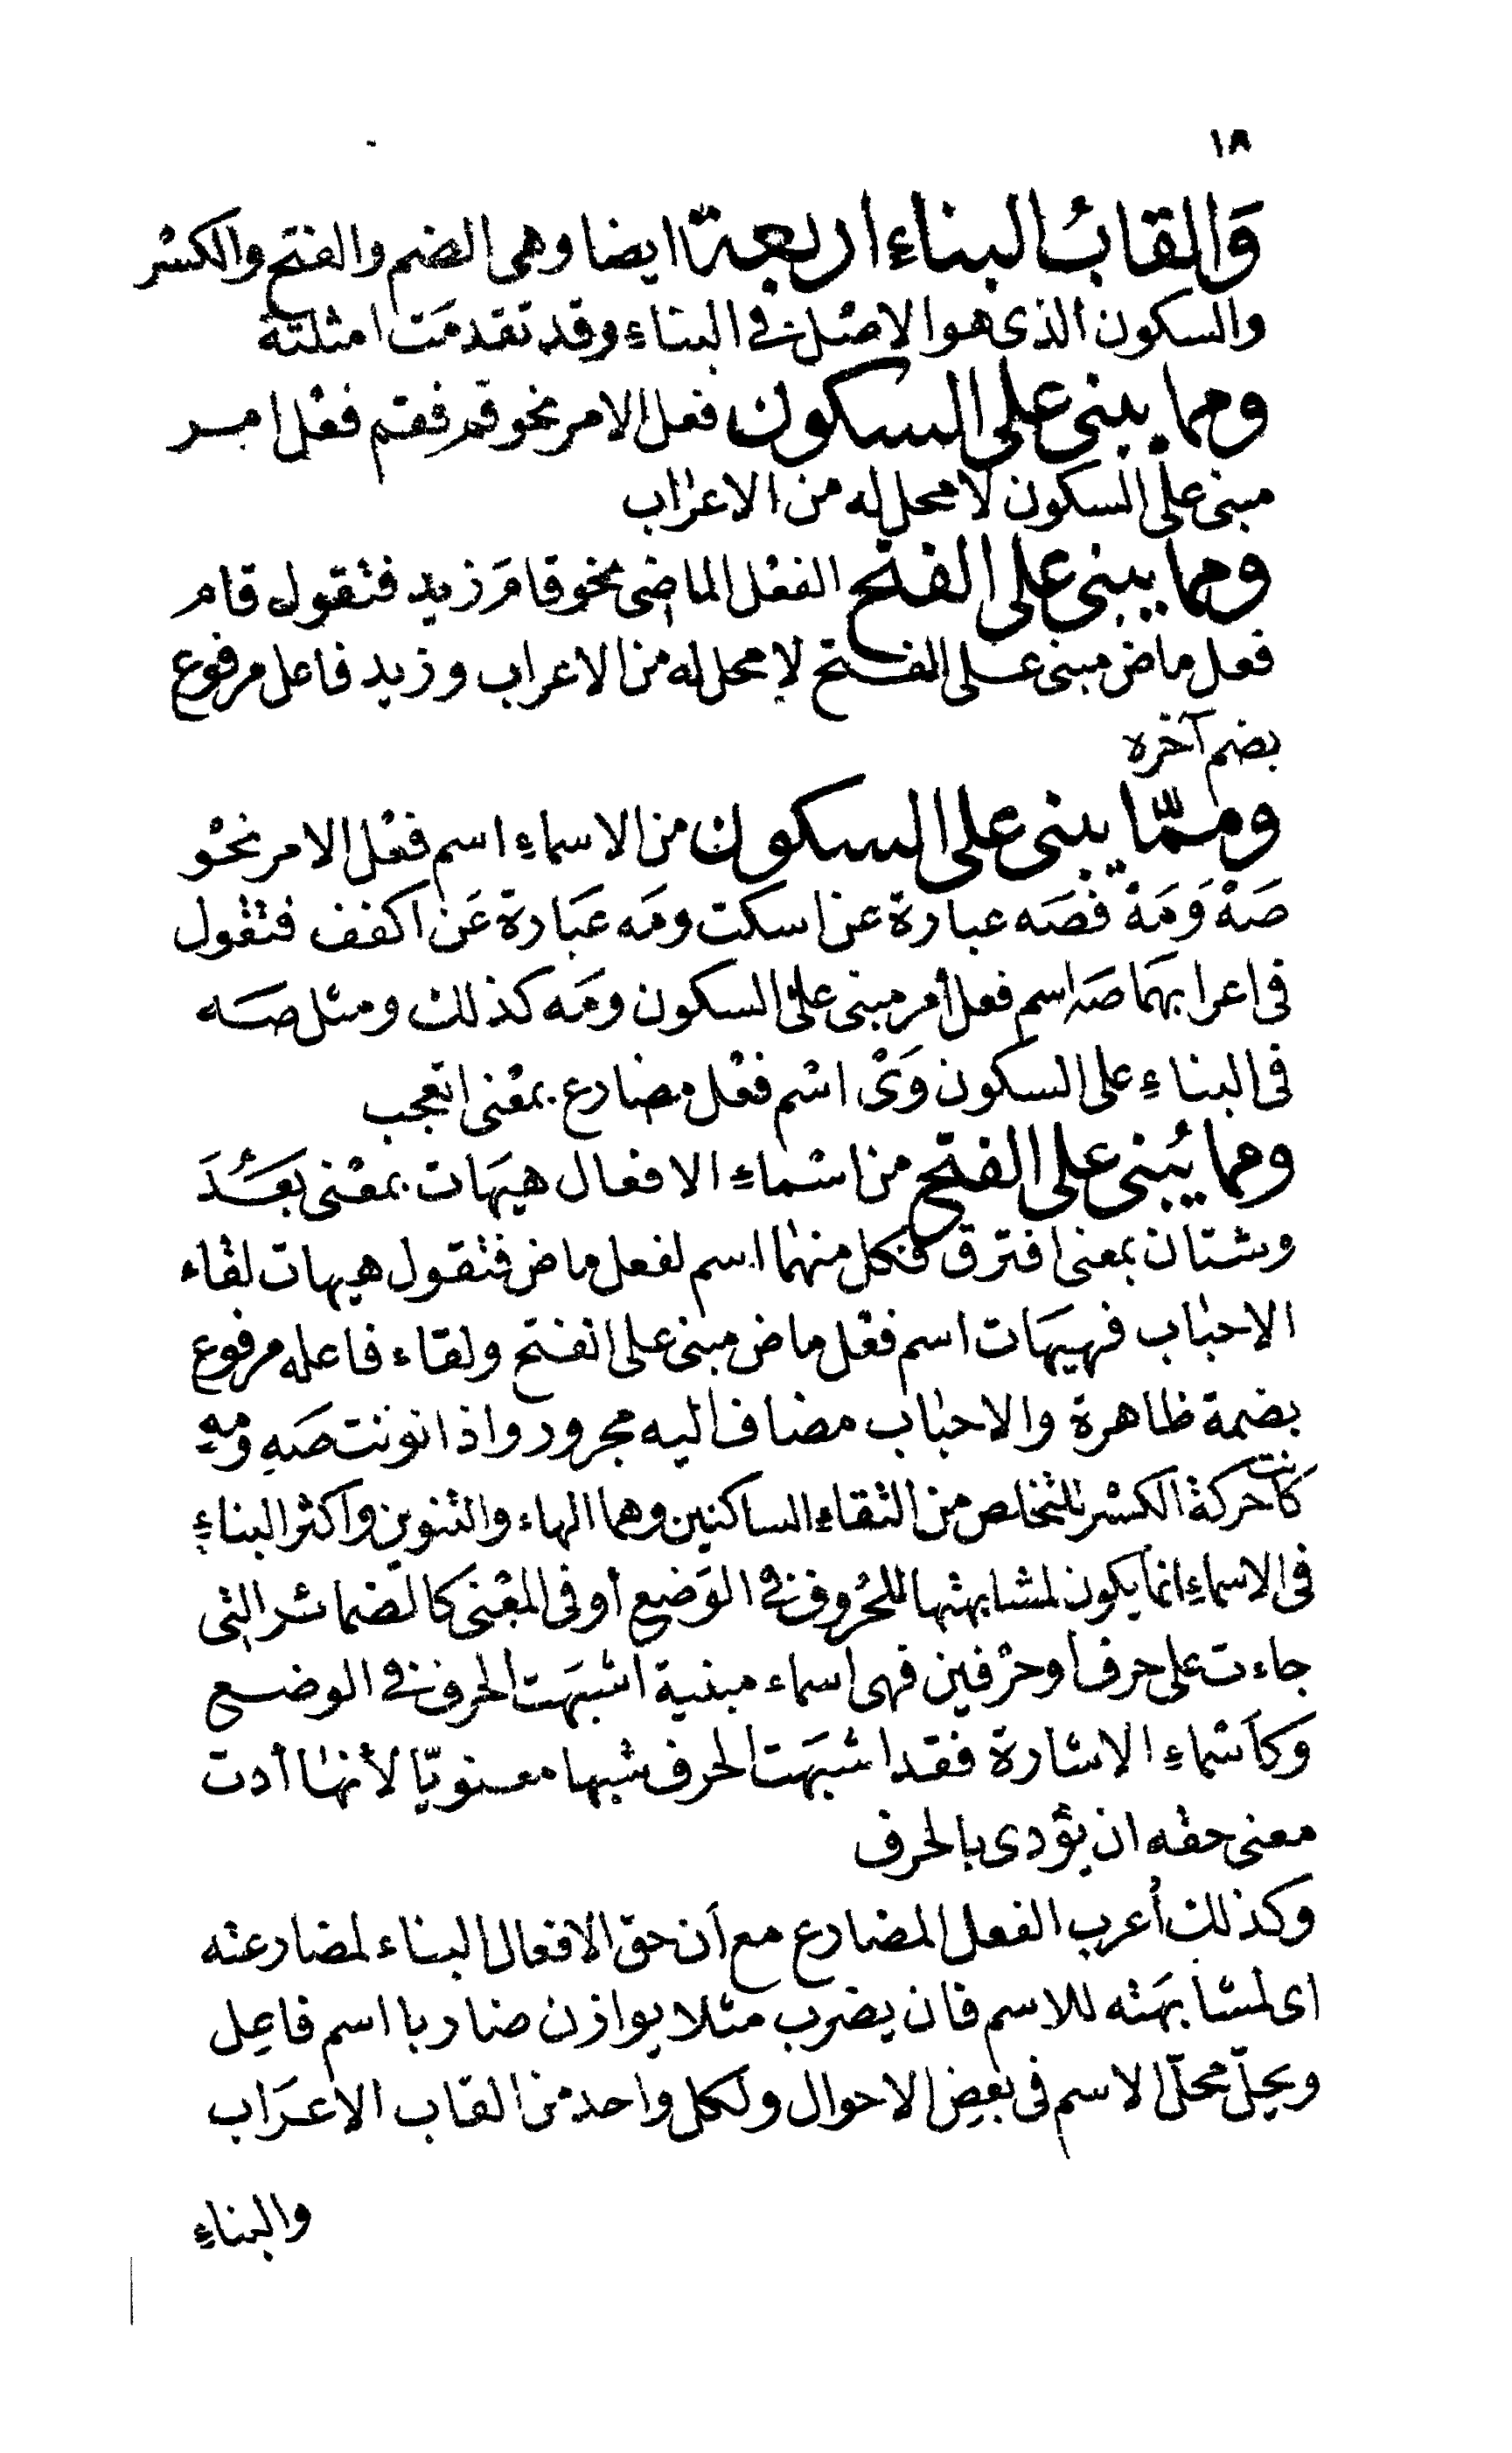 ١٨
وَالقابُ البناءِ اربعة ايضا وهى الضم والفتح والكسْر
والسكون الذى هو الاصْل فى البناءِ وقد تقدمَت امثلتة
ومما يبنى على السكون فعل الامر نحو قم فقم فعْل امر
مبنى على السكون لا محل له من الاعراب
ومما يبنى على الفتح الفعْل الماضى نحو قامَ زيد فتقول قام
فعل ماض مبنى على الفتح لا محل له من الاعراب وزيد فاعل مرفوع
بضم آخره
وممّا يبنى على السكون من الاسماءِ اسم فعْل الامر نحْو
صَهْ وَمَهْ فصَه عبارة عن اسكت ومَه عبَارة عَن اكفف فتقول
فى اعرابهمَا صَه اسم فعل أمر مبنى على السكون ومَه كذلك ومثل صَه
فى البناءِ على السكون وَىْ اسْم فعْل مضارع بمعْنى اتعجب
ومما يُبنى على الفتح من اسْماءِ الافعال هيَهات بمعْنى بَعُدَ
وشتان بمعنى افترق فكل منهما اسم لفعل ماض فتقول هيهات لقاء
الاحباب فهيَهات اسم فعْل ماض مبنى على الفتح ولقاء فاعله مرفوع
بضمة ظاهرة والاحباب مضاف اليه مجرور واذا نونت صَهٍ ومهٍ
كانت حركة الكسْر للتخلص من التقاءِ الساكنين وهما الهاء والتنوين واكثر البناءِ
فى الاسماءِ انما يكون لمشابهتها للحُروف فى الوَضع أو فى المعْنى كالضمائر التى
جاءت على حرف أو حرْفين فهى أسماء مبنية اشبهَت الحرف فى الوضع
وَكأسْماءِ الاشارة فقد اشبَهَت الحرف شبها معنويّا لأنها أدت
معنى حقه ان يؤدى بالحرف
وكذلك أُعرب الفعل المضارع مع أن حق الافعال البناء لمضارعته
اى لمشابهَته للاسم فان يضرب مثلا يوازن ضاربا اسم فاعِل
ويحلّ محلّ الاسم فى بعضِ الاحوال ولكل واحد من القاب الاعرَاب
والبناءِ